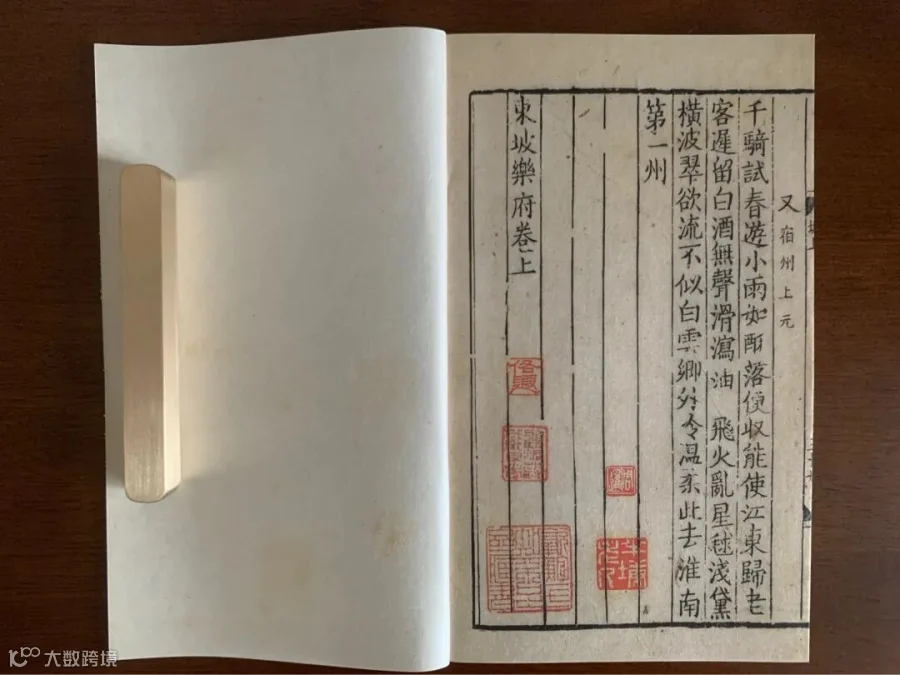 又宿州上元
千騎試春遊小雨如酥落便収能使江東歸老
客遲留白酒無聲滑瀉油　飛火亂星毬淺黛
橫波翠欲流不似白雲鄉外冷温柔此去淮南
第一州
東坡樂府卷上
大数跨境